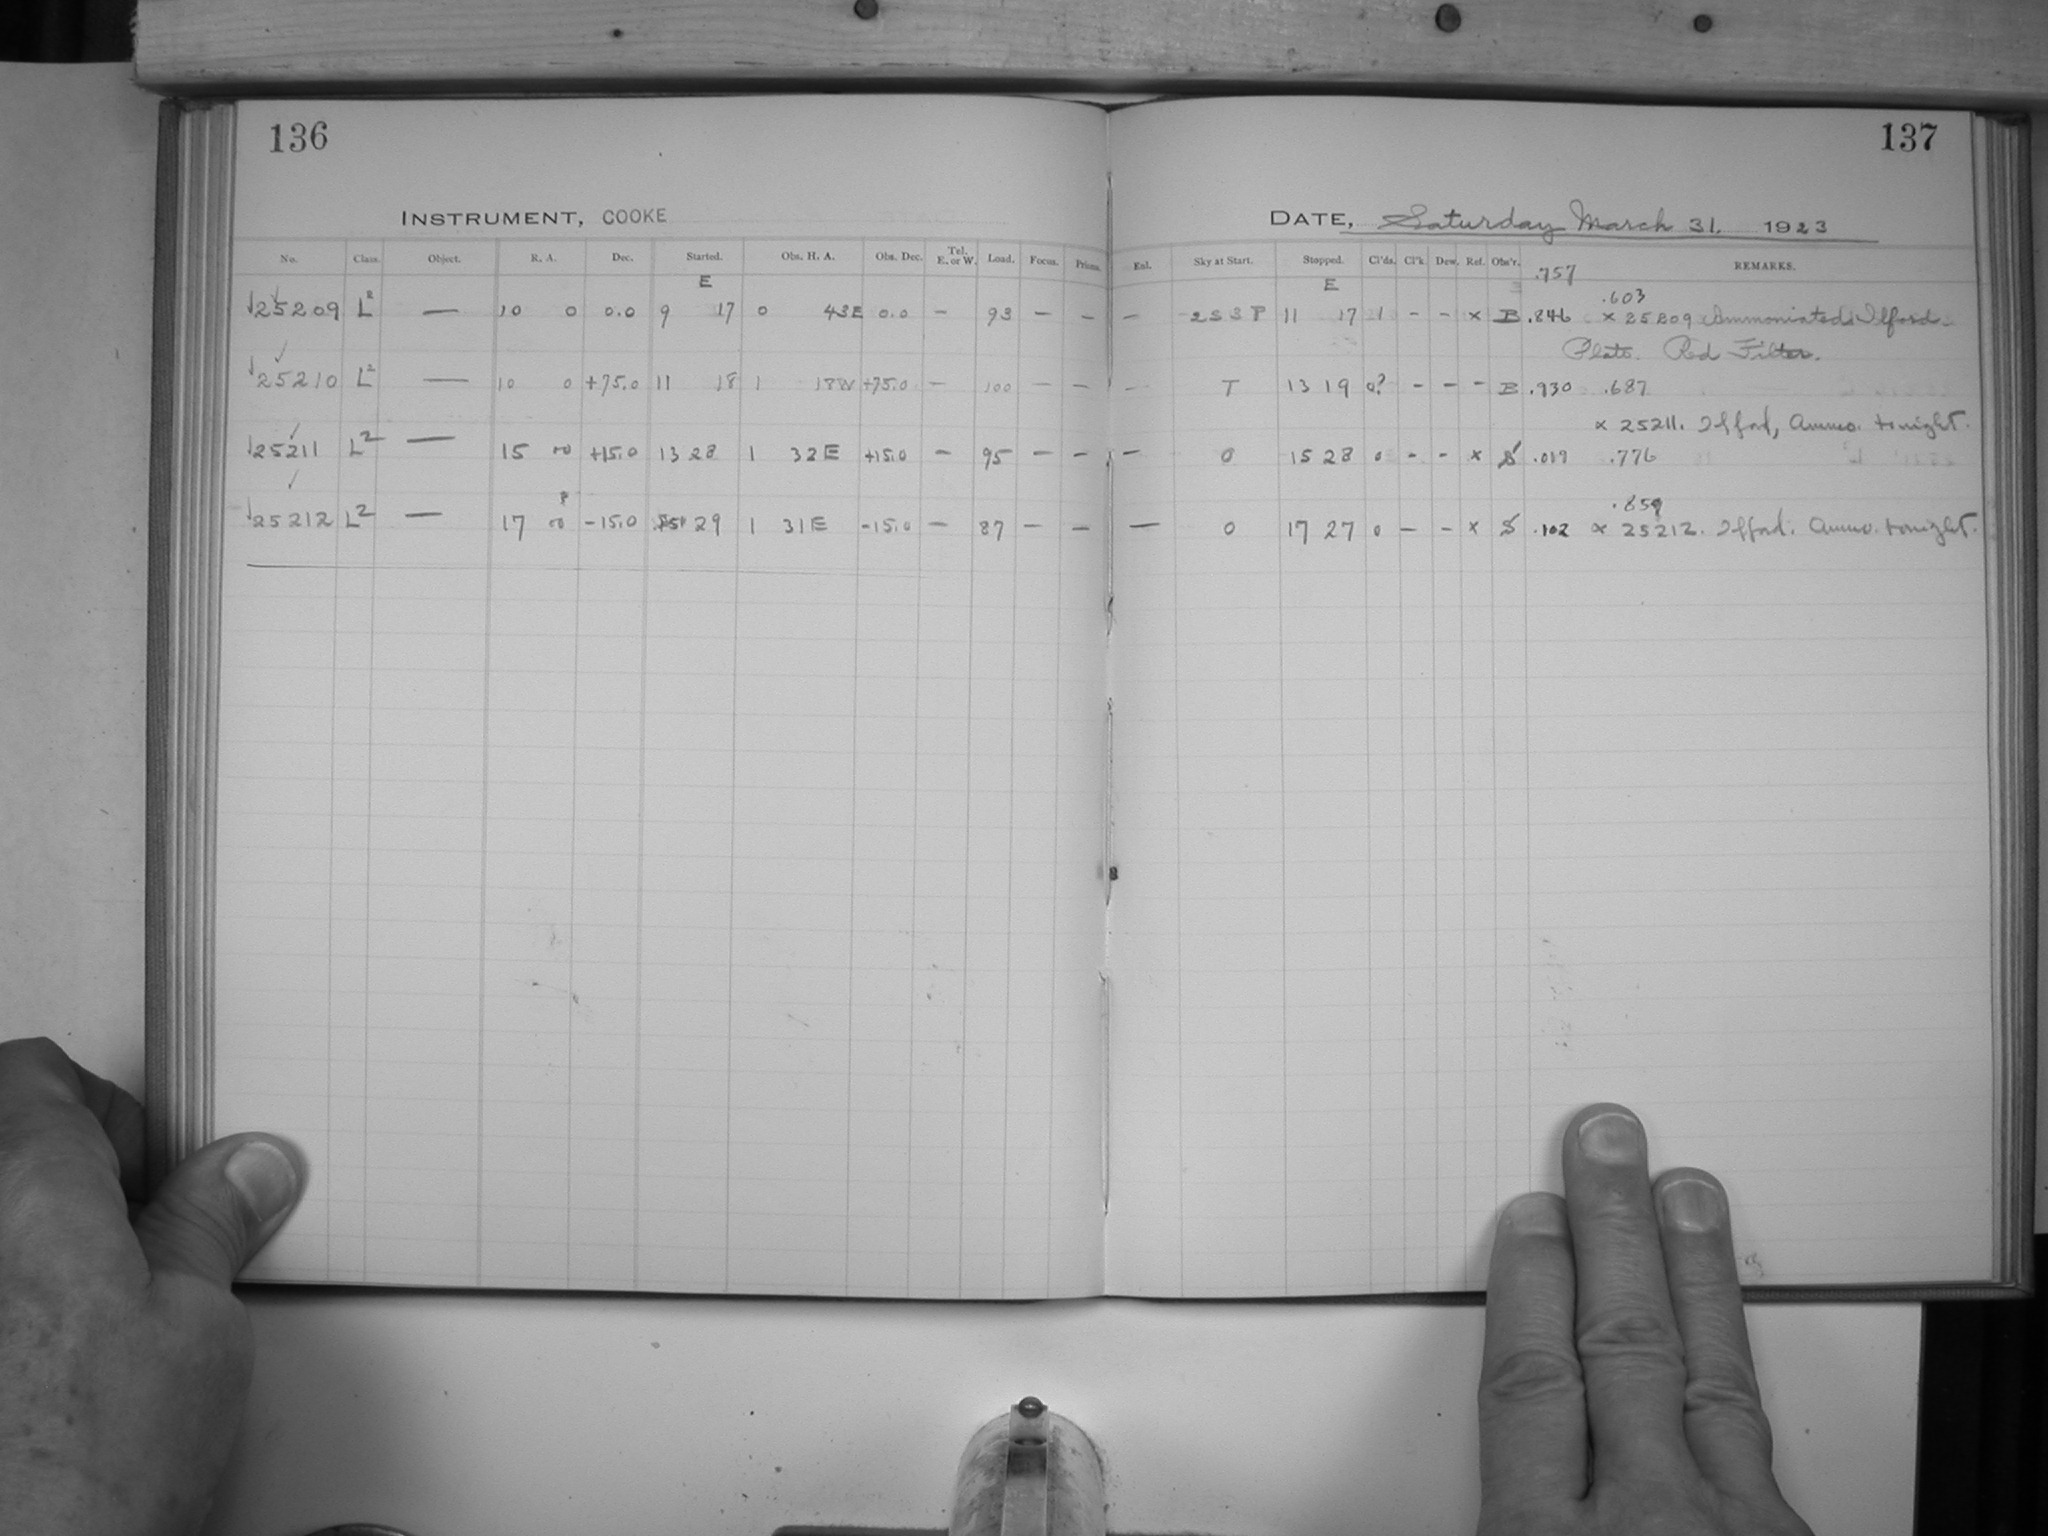 136
137
INSTRUMENT, COOKE
DATE, Saturday March 31, 1923
No. Class. Object. R. A. Dec. Started. Obs. H. A. Obs. Dec. Tel. E. or W. Load. Focus. Prisms. Enl. Sky at Start. Stopped. Cl'ds. Cl'k Dew. Ref. Obs'r. REMARKS.
E E .757
.603
25209 L² — 10 0 0.0 9 17 0 43E 0.0 – 93 – – – 2S3P 11 17 1 – – x B .846 x 25209 Ammoniated Ilford
Plate. Red Filter.
25210 L² — 10 0 +75.0 11 18 1 18W +75.0 – 100 – – – T 13 19 0? – – – B .930 .687
x 25211. Ilford, Ammo. tonight.
25211 L² — 15 00 +15.0 13 28 1 32E +15.0 – 95 – – – 0 15 28 0 – – x S .019 .776
.859
25212 L² — 17 00 -15.0 15 29 1 31E -15.0 – 87 – – — 0 17 27 0 – – x S .102 x 25212. Ilford. Ammo. tonight.